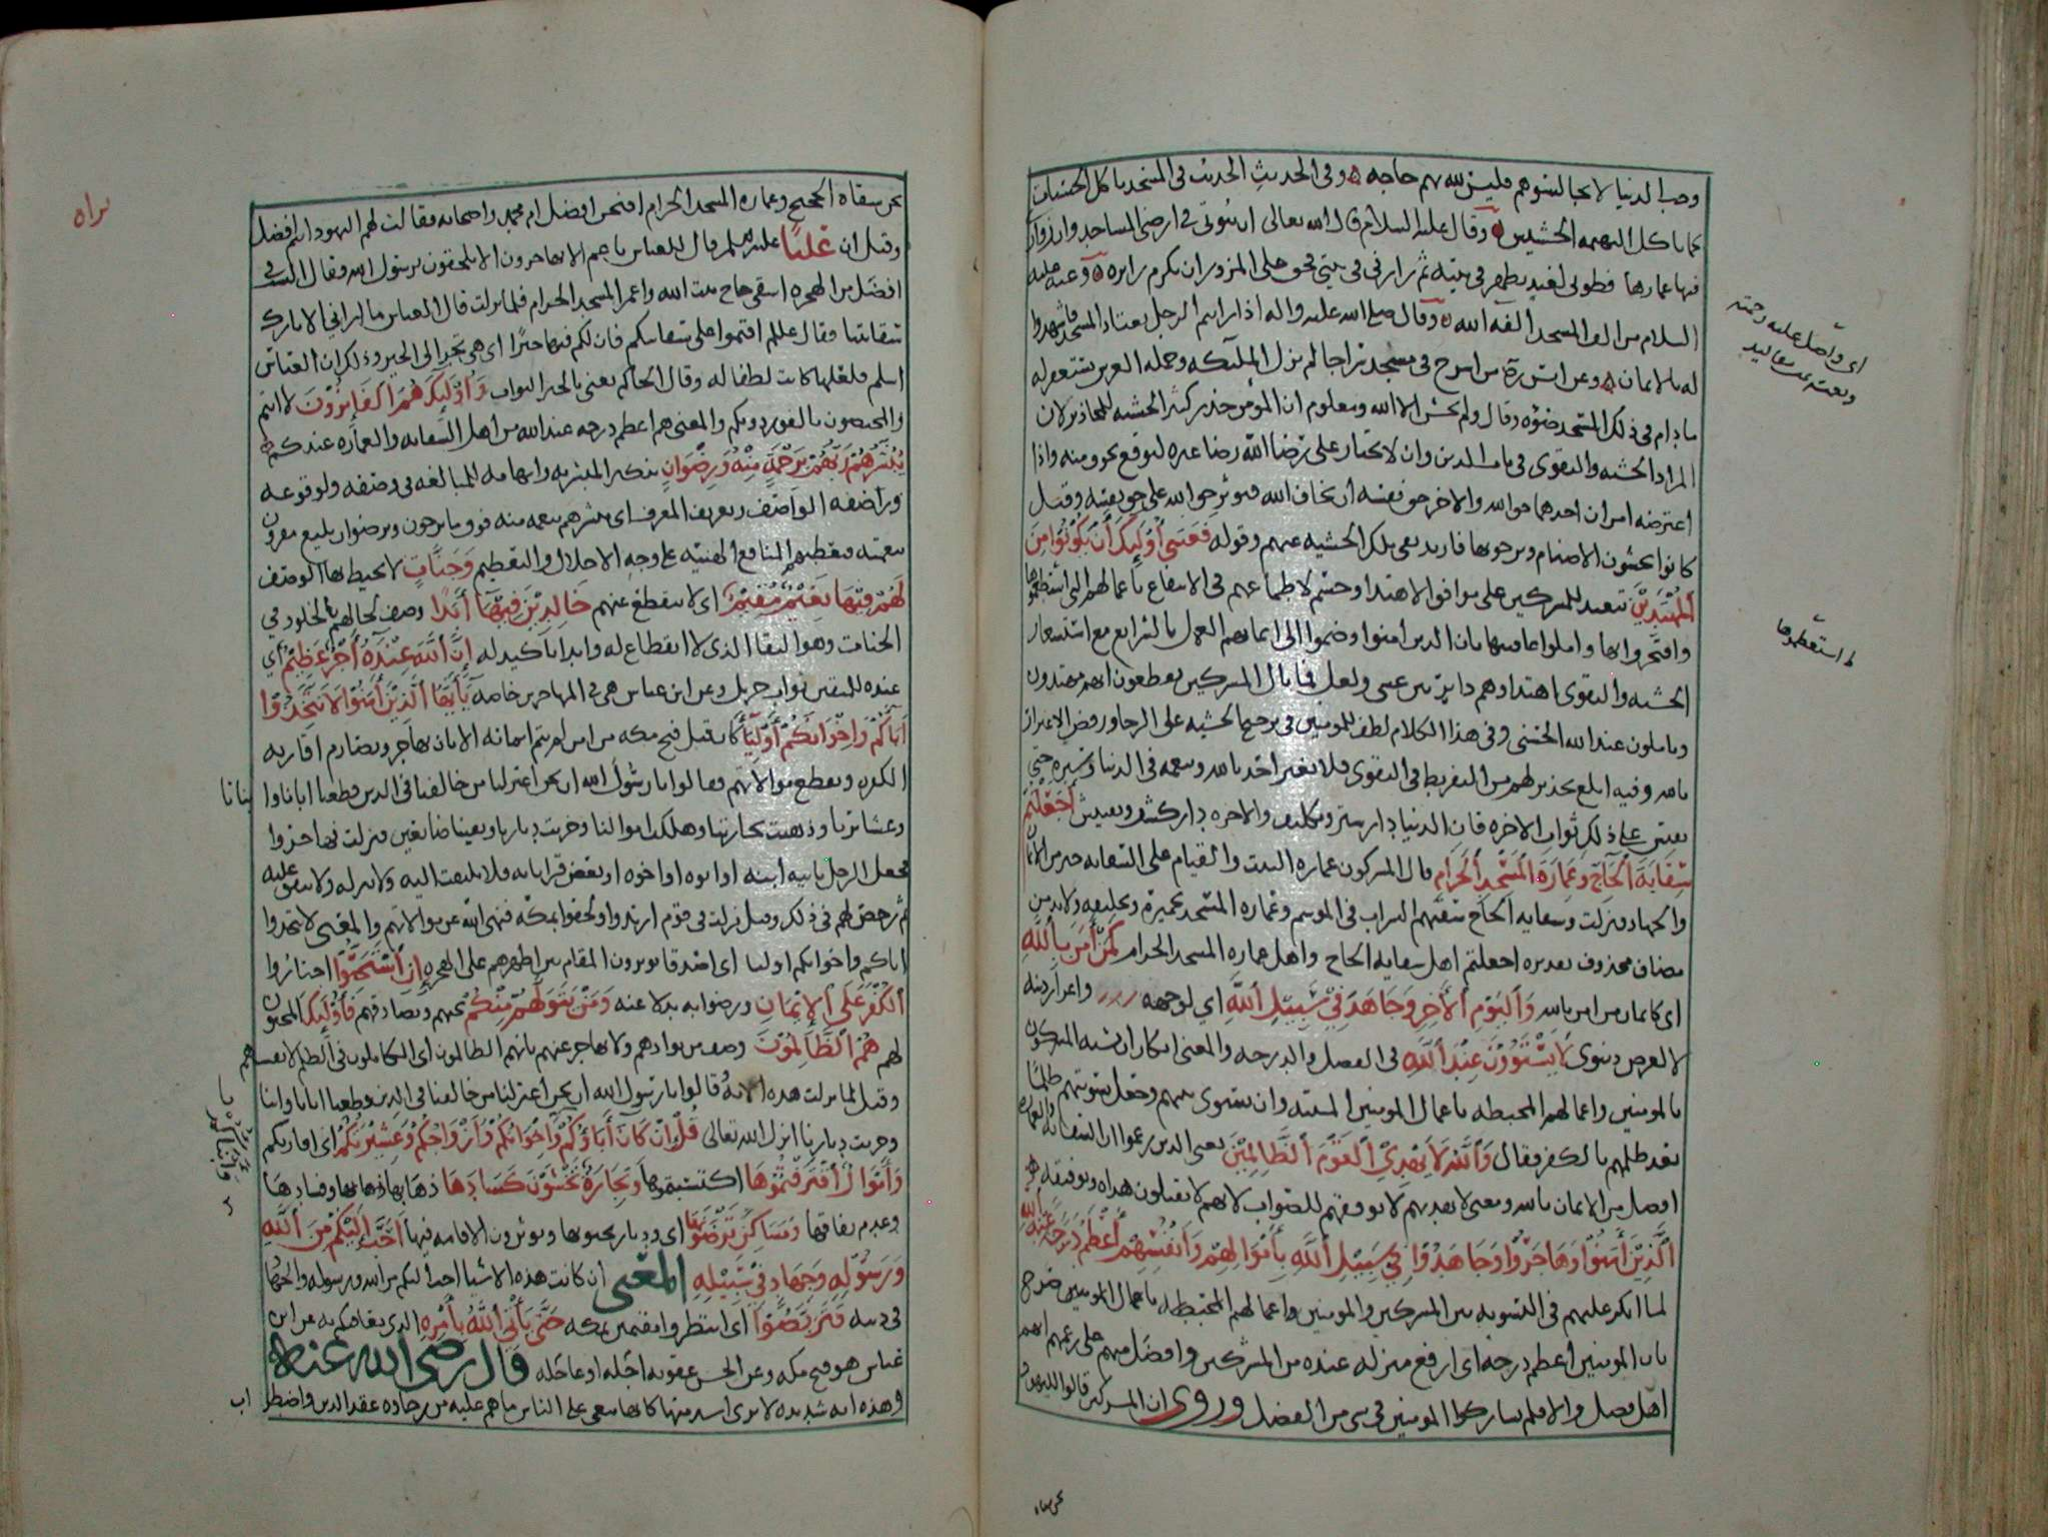 وحب الدنيا لا تجالسوهم فليس لله بهم حاجه وفي الحديث الحديث في المسجد ياكل الحسنات
كما تاكل البهيمه الحشيش وقال عليه السلام قال الله تعالى ان بيوتي في ارضي المساجد وان زواري
فيها عمارها فطوبى لعبد تطهر في بيته ثم زارني في بيتي فحق على المزور ان يكرم زايره وعنه عليه
السلام من الف المسجد الفه الله وقال صلى الله عليه واله اذا رايتم الرجل يعتاد المسجد فاشهدوا
له بالايمان وعن انس من اسرج في مسجد سراجا لم تزل الملائكه وحمله العرش تستغفر له
ما دام في ذلك المسجد ضؤه وقال ولم يخش الا الله ومعلوم ان المومن حذر كثير الخشيه للمحاذير لان
المراد الخشيه والتقوى في باب الدين وان لا يختار على رضا الله رضا غيره لتوقع مخوف منه واذا
اعترضه امران احدهما حق الله والاخر حق نفسه ان يخاف الله فيوثر حق الله على حق نفسه وقيل
كانوا يخشون الاصنام ويرجونها فاريد نفي تلك الخشيه عنهم وقوله فَعَسَى أُوْلَئِكَ أَن يَكُونُوا مِنَ
الْمُهْتَدِينَ تبعيد للمشركين عن مواقف الاهتدا وحسم لاطماعهم في الانتفاع باعمالهم التي استعظموها
وافتخروا بها واملوا عاقبتها بان الذين امنوا وضموا الى ايمانهم العمل بالشرايع مع استشعار
الخشيه والتقوى اهتداوهم داير بين عسى ولعل فما بال المشركين يقطعون انهم مهتدون
ويأملون عند الله الحسنى وفي هذا الكلام لطف للمومنين في ترجيح الخشيه على الرجا ورفض الاغترار
بالله وفيه ابلغ تحذير لهم من التفريط في التقوى فلا يغتر احد بالله ونعمه في الدنيا وستره حتى
يقيس على ذلك ثواب الاخره فان الدنيا دار ستر وتكليف والاخره دار كشف وتعيش أَجَعَلْتُمْ
سِقَايَةَ الْحَاجِّ وَعِمَارَةَ الْمَسْجِدِ الْحَرَامِ قال المشركون عماره البيت والقيام على السقايه خير من الايمان
والجهاد فنزلت وسقايه الحاج سقيهم الشراب في الموسم وعماره المسجد تجميره وتخليقه ولا بد من
مضاف محذوف تقديره اجعلتم اهل سقايه الحاج واهل عماره المسجد الحرام كَمَنْ آمَنَ بِاللَّهِ
اي كايمان من امن بالله وَالْيَوْمِ الآخِرِ وَجَاهَدَ فِي سَبِيلِ اللَّهِ اي لوجهه واعزاز دينه
لا لغرض دنيوي لاَ يَسْتَوُونَ عِنْدَ اللَّهِ في الفضل والدرجه والمعنى انكار ان يشبه المشركون
بالمومنين واعمالهم المحبطه باعمال المومنين المثبته وان يسوى بينهم وجعل تسويتهم ظلما
بعد ظلمهم بالكفر فقال وَاللَّهُ لاَ يَهْدِي الْقَوْمَ الظَّالِمِينَ يعني الذين زعموا ان السقايه والعماره
افضل من الايمان بالله ومعنى لا يهديهم لا يوفقهم للصواب لانهم لا يقبلون هداه وتوفيقه
الَّذِينَ آمَنُوا وَهَاجَرُوا وَجَاهَدُوا فِي سَبِيلِ اللَّهِ بِأَمْوَالِهِمْ وَأَنْفُسِهِمْ أَعْظَمُ دَرَجَةً عِنْدَ اللَّهِ
لما انكر عليهم في التسويه بين المشركين والمومنين واعمالهم المحبطه باعمال المومنين صرح
بان المومنين اعظم درجه اي ارفع منزله عنده من المشركين وافضل منهم على زعمهم انهم
اهل فضل والا فلم يشاركوا المومنين في شي من الفضل وروي ان المشركين قالوا لليهود
اي وأصل عليه رحمته
ط استعظموها
نحن سقاة الحجيج وعماره المسجد الحرام افنحن افضل ام محمد واصحابه فقالت لهم اليهود انتم افضل
وقيل ان عَلِيًّا عليه السلم قال للعباس يا عم الا تهاجرون الا تلحقون برسول الله فقال الست في
افضل من الهجره اسقي حاج بيت الله واعمر المسجد الحرام فلما نزلت قال العباس ما اراني الا تارك
سقايتنا فقال عليلم اقيموا على سقايتكم فان لكم فيها خيرا اي هي تجر الى الخير وذلك ان العباس
اسلم فلعلها كانت لطفا له وقال الحاكم يعني بالخير الثواب وَأُوْلَئِكَ هُمُ الْفَائِزُونَ لا انتم
والمختصون بالفوز دونكم والمعنى هم اعظم درجه عند الله من اهل السقايه والعماره عندكم
يُبَشِّرُهُمْ رَبُّهُمْ بِرَحْمَةٍ مِنْهُ وَرِضْوَانٍ تنكير المبشر به وابهامه للمبالغه في وصفه ولوقوعه
ورا صفه الواصف وتعريف المعرف اي يبشرهم بنعمه منه فوق ما يرجون وبرضوان بليغ مقرون
بنعمته فيعطيهم المنافع الهنيئه على وجه الاجلال والتعظيم وَجَنَّاتٍ لا يحيط بها الوصف
لَهُمْ فِيهَا نَعِيمٌ مُقِيمٌ اي لا ينقطع عنهم خَالِدِينَ فِيهَا أَبَدًا وصف لحالهم بالخلود في
الجنات وهو البقا الذي لا انقطاع له وابدا تاكيد له إِنَّ اللَّهَ عِنْدَهُ أَجْرٌ عَظِيمٌ اي
عنده للمتقين ثواب جزيل وعن ابن عباس هي في المهاجرين خاصه يَا أَيُّهَا الَّذِينَ آمَنُوا لاَ تَتَّخِذُوا
آبَاءَكُمْ وَإِخْوَانَكُمْ أَوْلِيَاءَ كان قبل فتح مكه من امن لم يتم ايمانه الا بان يهاجر ويصارم اقاربه
الكفره ويقطع موالاتهم فقالوا يا رسول الله ان نحن اعتزلنا من خالفنا في الدين قطعنا ابانا وابنانا
وعشايرنا وذهبت تجارتنا وهلكت اموالنا وخربت ديارنا وبقينا ضايعين فنزلت فهاجروا
فجعل الرجل ياتيه ابنه او ابوه او اخوه او بعض قراباته فلا يلتفت اليه ولا ينزله ولا ينفق عليه
ثم رخص لهم في ذلك وقيل نزلت في قوم ارتدوا ولحقوا بمكه فنهى الله عن موالاتهم والمعنى لا تتخذوا
اباكم واخوانكم اوليا اي اصدقا توثرون المقام بين اظهرهم على الهجره إِنِ اسْتَحَبُّوا اختاروا
الْكُفْرَ عَلَى الإِيْمَانِ ورضوا به بدلا عنه وَمَنْ يَتَوَلَّهُمْ مِنْكُمْ يحبهم ويصادقهم فَأُوْلَئِكَ المحبون
لهم هُمُ الظَّالِمُونَ وصف من يوادهم ولا يهاجر عنهم بانهم الظالمون اي الكاملون في الظلم لانفسهم
وقيل لما نزلت هذه الايه قالوا يا رسول الله ان نحن اعتزلنا من خالفنا في الدين قطعنا ابانا وابنا
وخربت ديارنا انزل الله تعالى قُلْ إِنْ كَانَ آبَاؤُكُمْ وَإِخْوَانُكُمْ وَأَزْوَاجُكُمْ وَعَشِيرَتُكُمْ اي اقاربكم
وَأَمْوَالٌ اقْتَرَفْتُمُوهَا اكتسبتموها وَتِجَارَةٌ تَخْشَوْنَ كَسَادَهَا ذهابها وفسادها
وعدم نفاقها وَمَسَاكِنُ تَرْضَوْنَهَا اي وديار تحبونها وتوثرون الاقامه فيها أَحَبَّ إِلَيْكُمْ مِنَ اللَّهِ
وَرَسُولِهِ وَجِهَادٍ فِي سَبِيلِهِ المعنى ان كانت هذه الاشيا احب اليكم من الله ورسوله والجهاد
في دينه فَتَرَبَّصُوا اي انتظروا مقيمين بمكه حَتَّى يَأْتِيَ اللَّهُ بِأَمْرِهِ الذي يعاقبكم به عن ابن
عباس هو فتح مكه وعن الحسن عقوبه اجله او عاجله قال رضي الله عنه
وهذه ايه شديده لا ترى اشد منها كانها تنعى على الناس ما هم عليه من رخاوه عقد الدين واضطر
اب
براه
وأبناؤكم
نحن سقاه